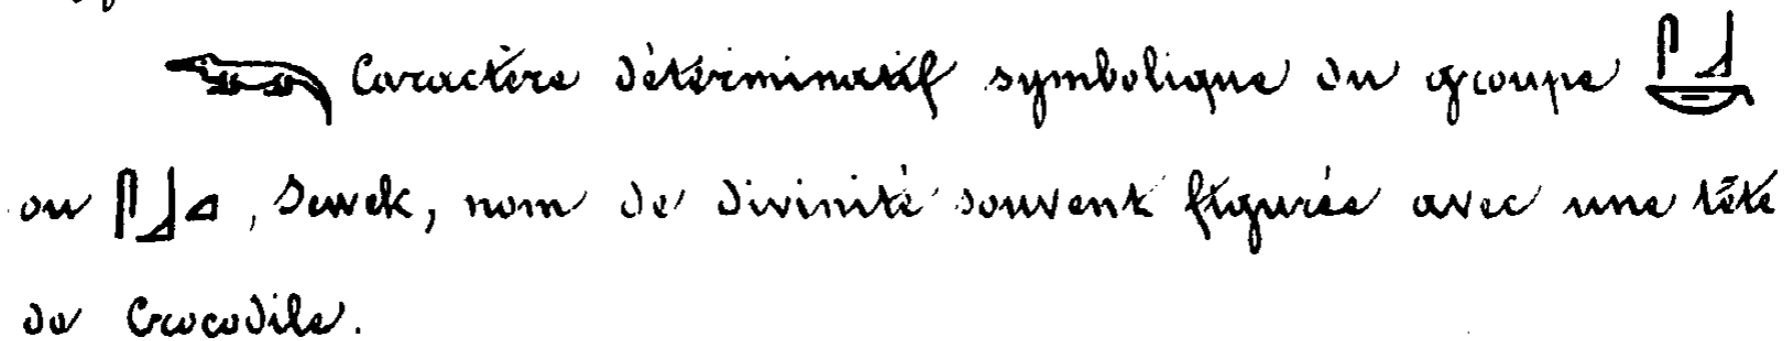 𓆊 Caractère déterminatif symbolique du groupe 𓋴𓃀𓎡
ou 𓋴𓃀𓈎, Sevek, nom de divinité souvent figurée avec une tête
de Crocodile.